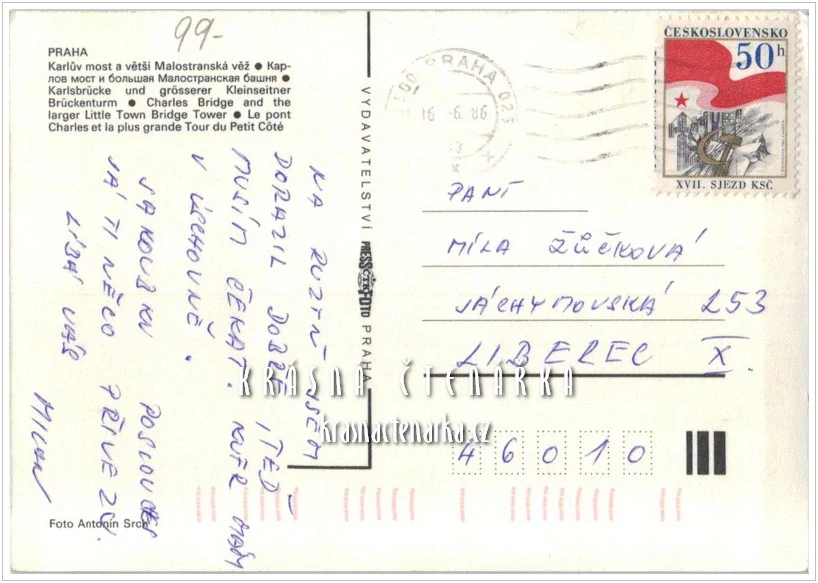 99-
PRAHA
Karlův most a větší Malostranská věž ● Кар-
лов мост и большая Малостранская башня ●
Karlsbrücke und grösserer Kleinseitner
Brückenturm ● Charles Bridge and the
larger Little Town Bridge Tower ● Le pont
Charles et la plus grande Tour du Petit Côté
NA RUZYNI JSEM
DORAZIL DOBŘE, TEĎ
MUSÍM ČEKAT. KUFR MÁM
V ÚSCHOVNĚ.
JAKOUBKU POSLOUCHEJ
JÁ TI NĚCO PŘIVEZU.
LÍBÁ VÁS
MILAN
Foto Antonín Srch
VYDAVATELSTVÍ PRESSFOTO PRAHA
ČTK
PRAHA 025
16 -6. 86
ČESKOSLOVENSKO
50h
XVII. SJEZD KSČ
PANÍ
MÍLA ŽŮČKOVÁ
JÁCHYMOVSKÁ 253
LIBEREC X.
46010
KRÁSNÁ ČTENÁRKA
krasnactenarka.cz